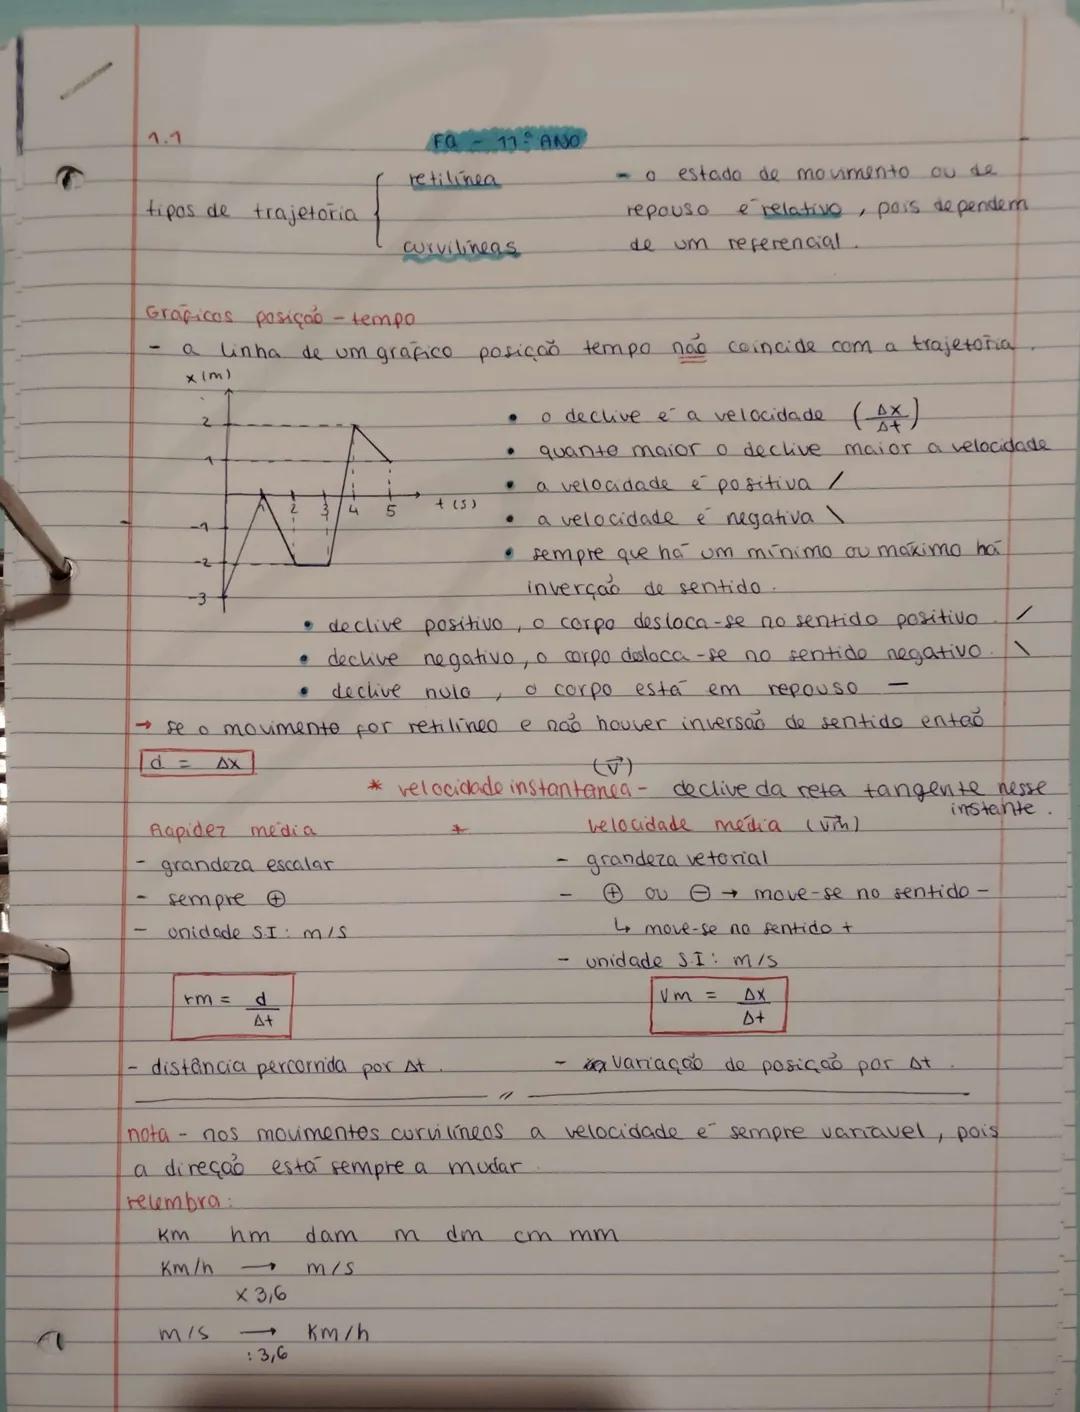 1.1
FQ - 11º ANO
retilínea
tipos de trajetória
curvilíneas
- o estado de movimento ou de
repouso é relativo, pois dependem
de um referencial.
Gráficos posição - tempo
- a linha de um gráfico posição tempo não coincide com a trajetória.
x (m)
2
1
2 3 4 5 t (s)
-1
-2
-3
• o declive é a velocidade (Δx/Δt)
• quanto maior o declive maior a velocidade
• a velocidade é positiva /
• a velocidade é negativa \
• sempre que há um mínimo ou máximo há
inverção de sentido.
• declive positivo, o corpo desloca-se no sentido positivo. /
• declive negativo, o corpo desloca-se no sentido negativo. \
• declive nulo, o corpo está em repouso —
→ se o movimento for retilíneo e não houver inversão de sentido então
d = Δx
(v⃗)
* velocidade instantânea - declive da reta tangente nesse
instante.
Rapidez média *
- grandeza escalar
- sempre ⊕
- unidade S.I: m/s
rm = d/Δt
- distância percorrida por Δt.
velocidade média (v⃗m)
- grandeza vetorial
- ⊕ ou ⊖ → move-se no sentido -
↳ move-se no sentido +
- unidade S.I: m/s
Vm = Δx/Δt
- variação de posição por Δt.
//
nota - nos movimentos curvilíneos a velocidade é sempre variável, pois
a direção está sempre a mudar.
relembra:
Km hm dam m dm cm mm
Km/h → m/s
x 3,6
m/s → Km/h
: 3,6